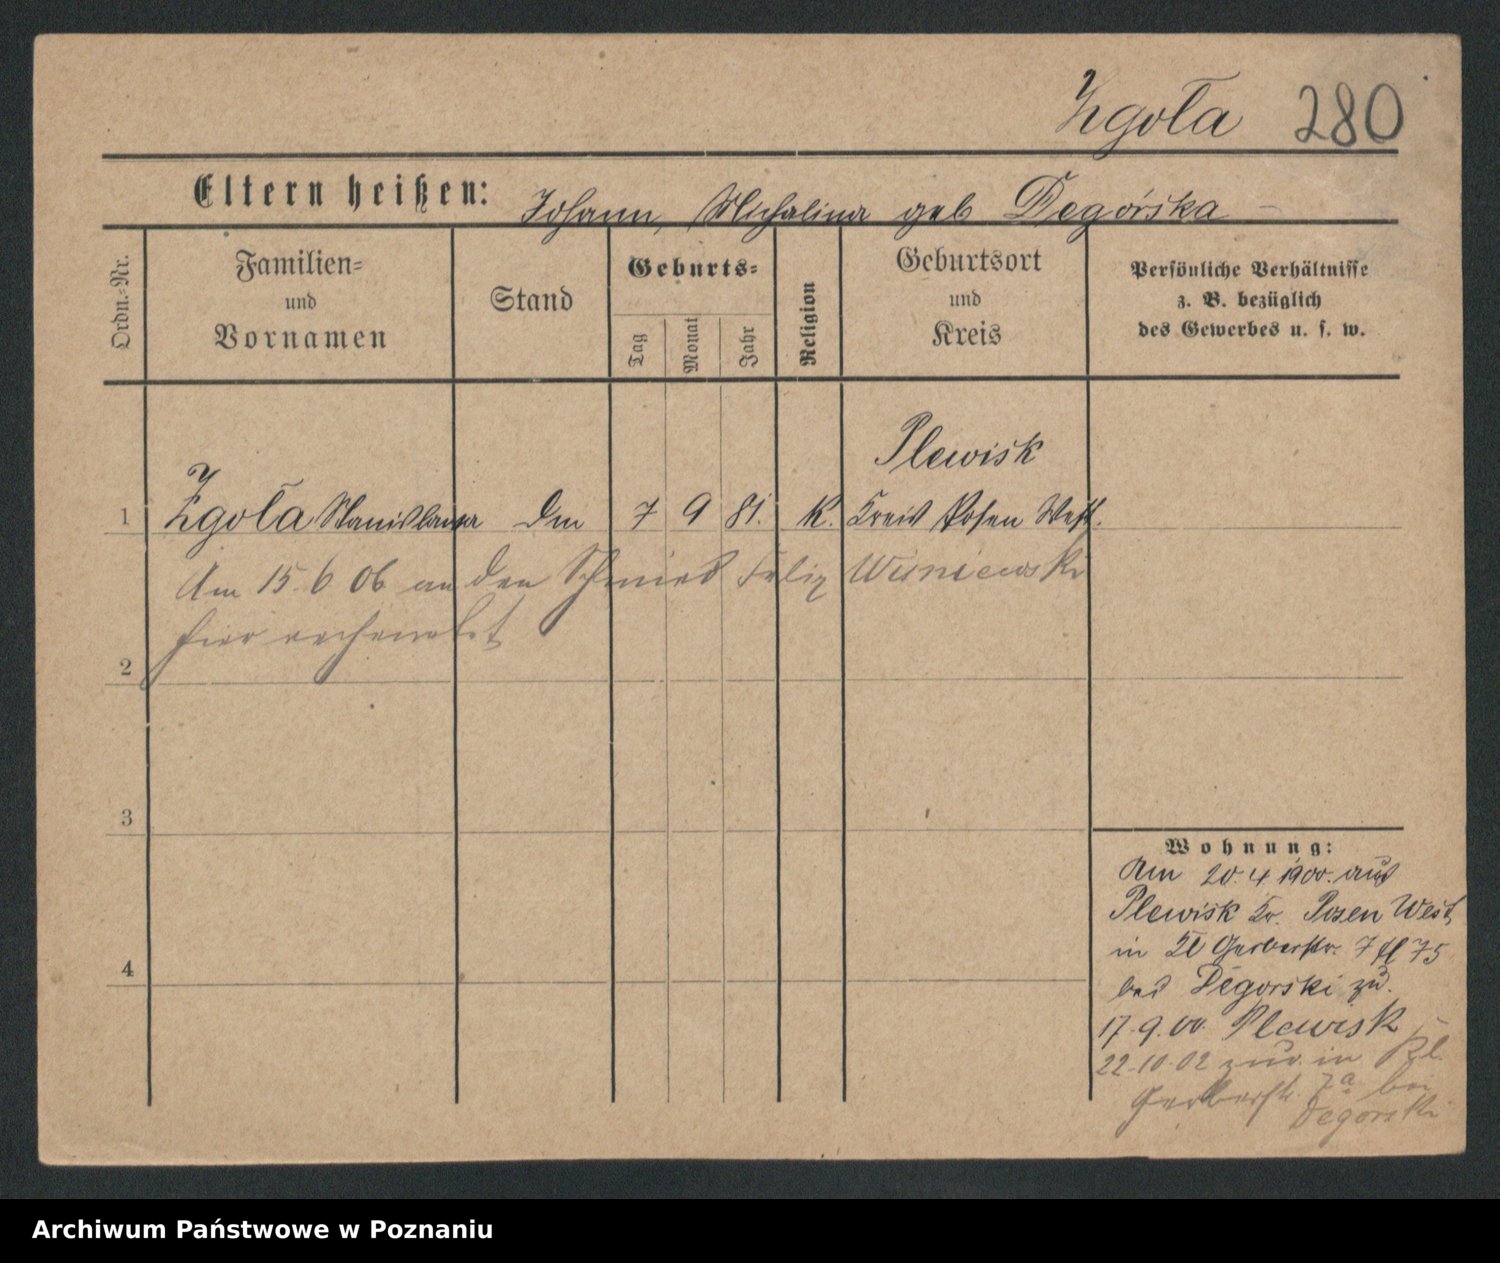 Zgoła 280
Eltern heißen: Johann, Michalina geb Degórska
Ordn.-Nr.
Familien-
und
Vornamen
Stand
Geburts-
Tag
Monat
Jahr
Religion
Geburtsort
und
Kreis
Persönliche Verhältnisse
z. B. bezüglich
des Gewerbes u. s. w.
Plewisk
1 Zgoła Stanislawa Dm 7 9 81. K. Kreis Posen West.
Am 15. 6 06 an den Schmied Felix Wisniewski
hier verheiratet
2
3
4
Wohnung:
Am 20. 4 1900. aus
Plewisk Kr. Posen West,
in Kl Gerberstr. 7 75
bei Degorski zu.
17. 9. 00. Plewisk
22. 10. 02 zur. in Kl.
Gerberstr. 7a bei
Degorski
Archiwum Państwowe w Poznaniu